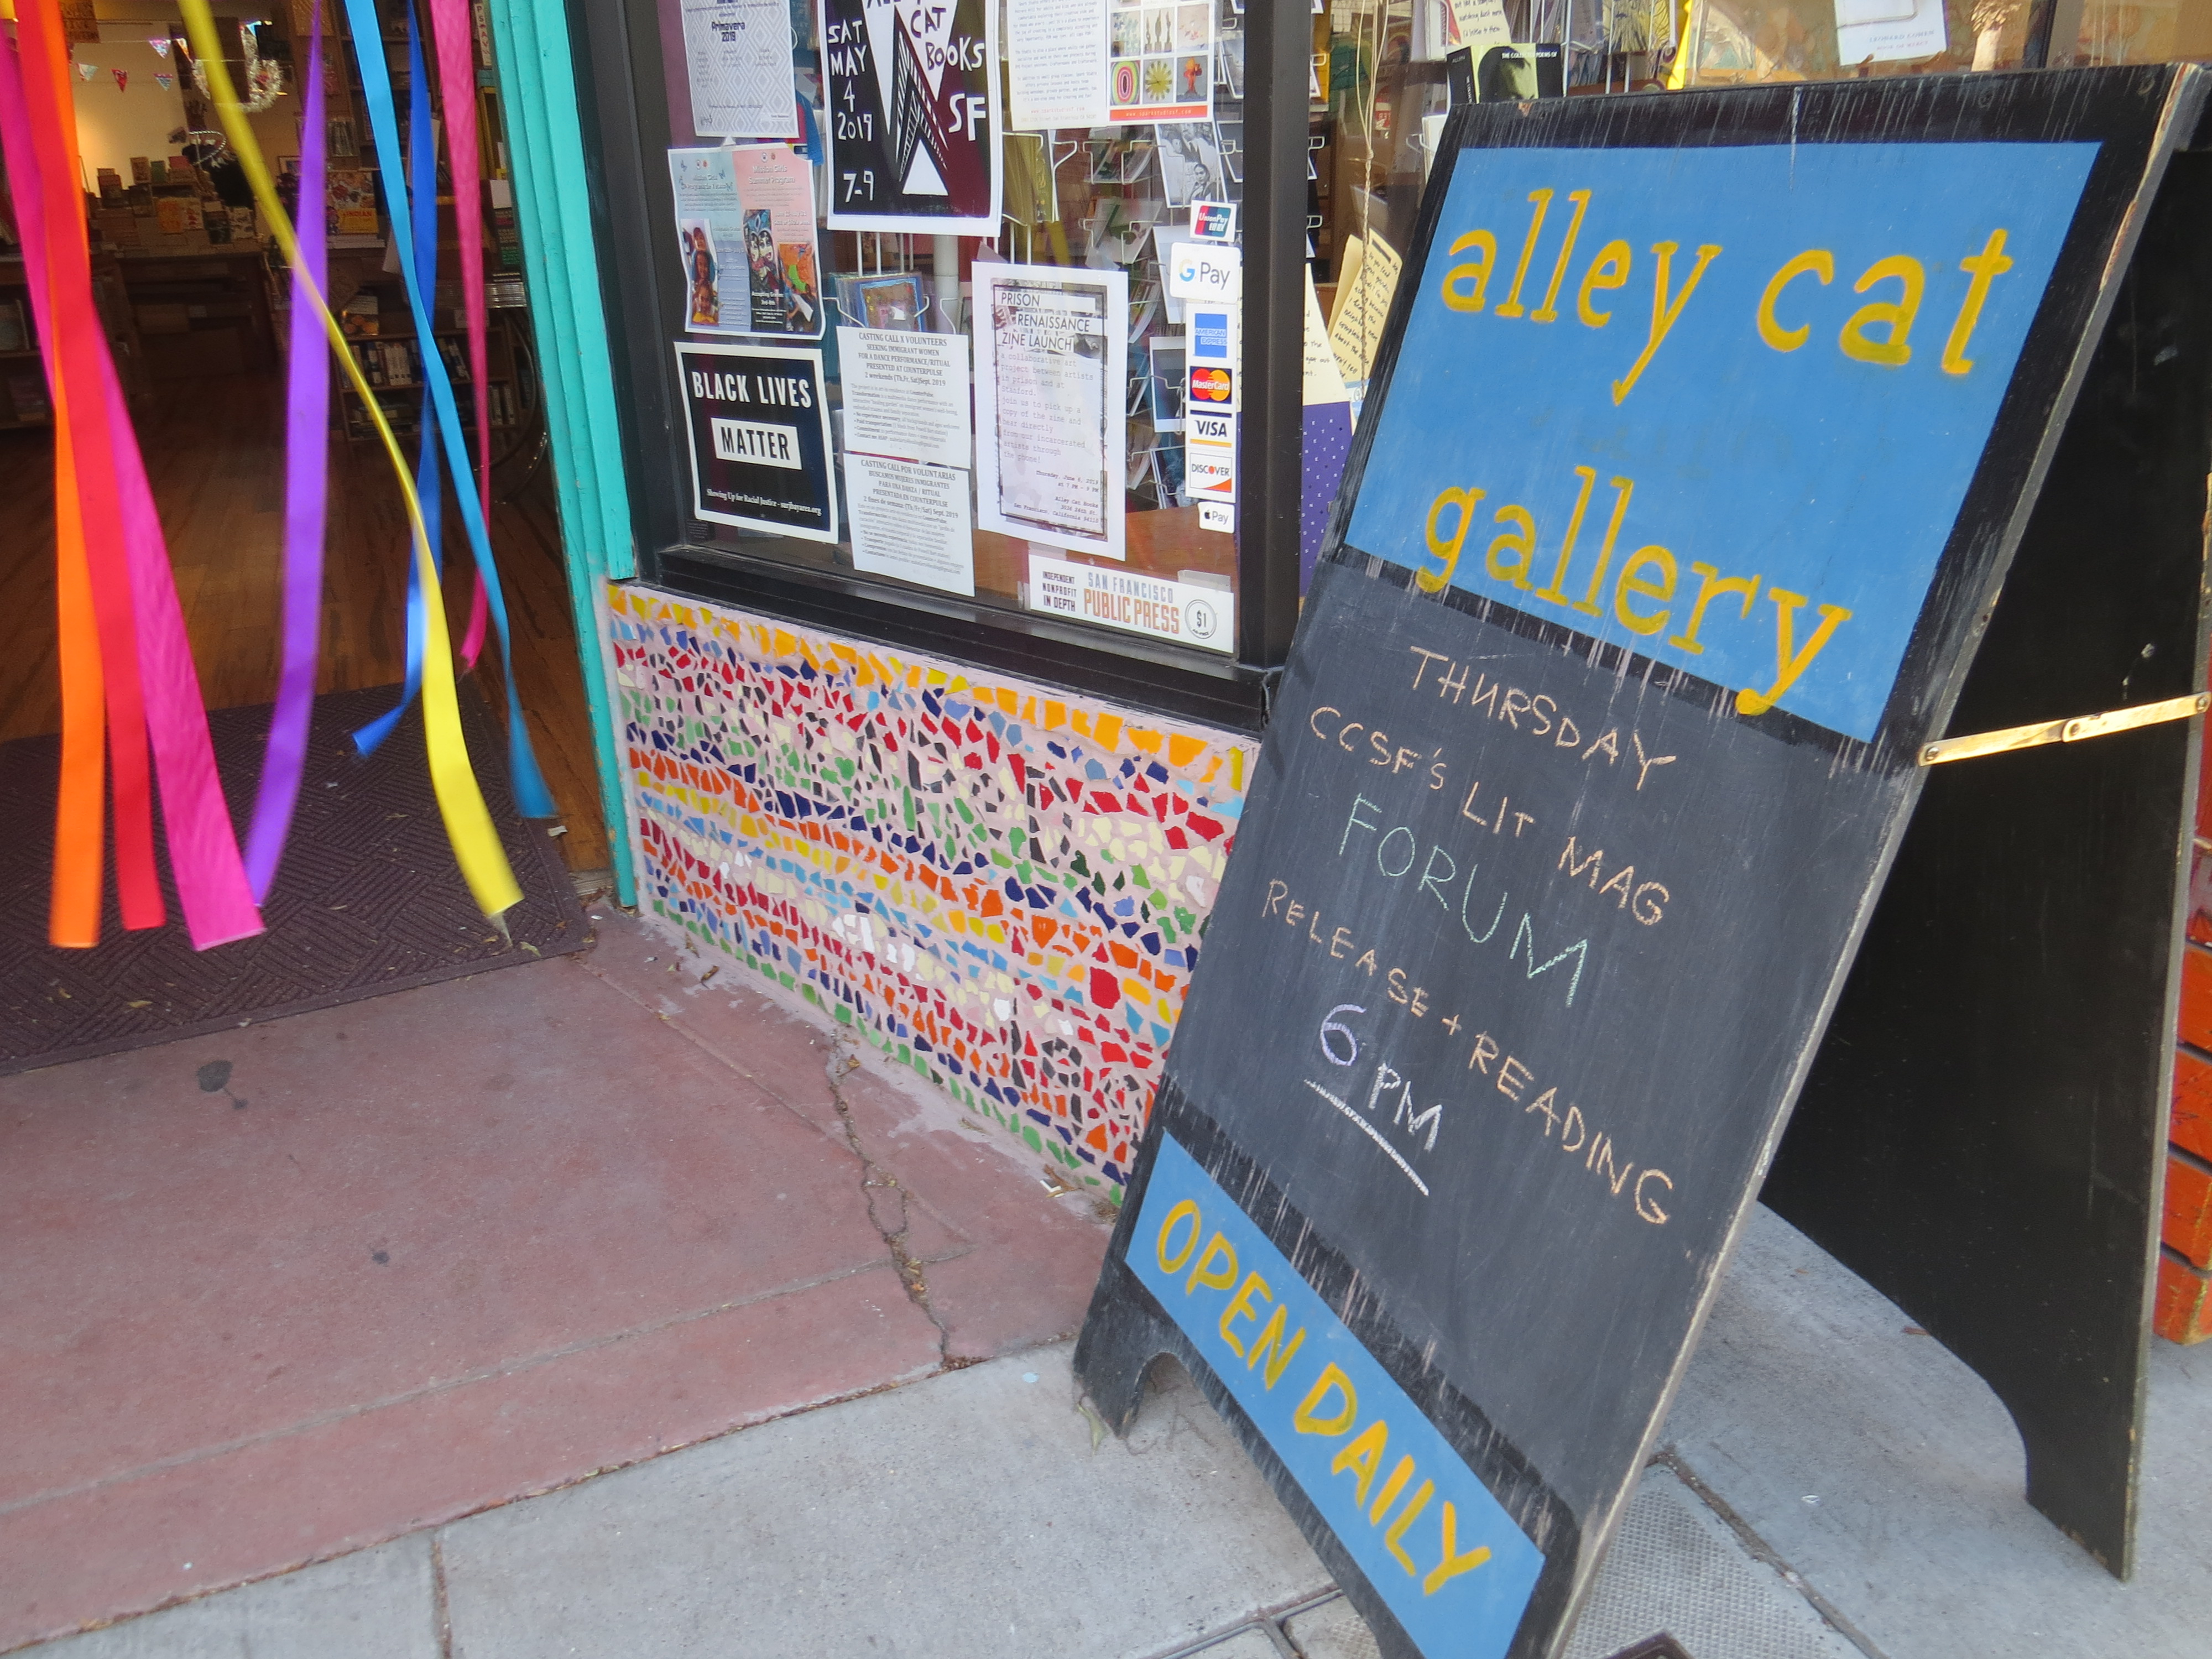 Primavera
2019
SAT
MAY
4
2019
7-9
CAT
BOOKS
SF
BLACK LIVES
MATTER
Showing Up for Racial Justice - surjbayarea.org
CASTING CALL X VOLUNTEERS
SEEKING IMMIGRANT WOMEN
FOR A DANCE PERFORMANCE/RITUAL
PRESENTED AT COUNTERPULSE
2 weekends (Th/Fr/Sat) Sept. 2019
CASTING CALL POR VOLUNTARIAS
BUSCAMOS MUJERES IMMIGRANTES
PARA UNA DANZA / RITUAL
PRESENTADA EN COUNTERPULSE
2 fines de semana (Th/Fr/Sat) Sept. 2019
PRISON
RENAISSANCE
ZINE LAUNCH
a collaborative art
project between artists
in prison and at
Stanford.
join us to pick up a
copy of the zine and
hear directly
from our incarcerated
artists through
the phone!
Alley Cat Books
San Francisco,
California 94110
UnionPay
G Pay
AMERICAN
EXPRESS
MasterCard
VISA
DISCOVER
Pay
INDEPENDENT
NONPROFIT
IN DEPTH
SAN FRANCISCO
PUBLIC PRESS
$1
alley cat
gallery
THURSDAY
CCSF'S LIT MAG
FORUM
RELEASE + READING
6 PM
OPEN DAILY